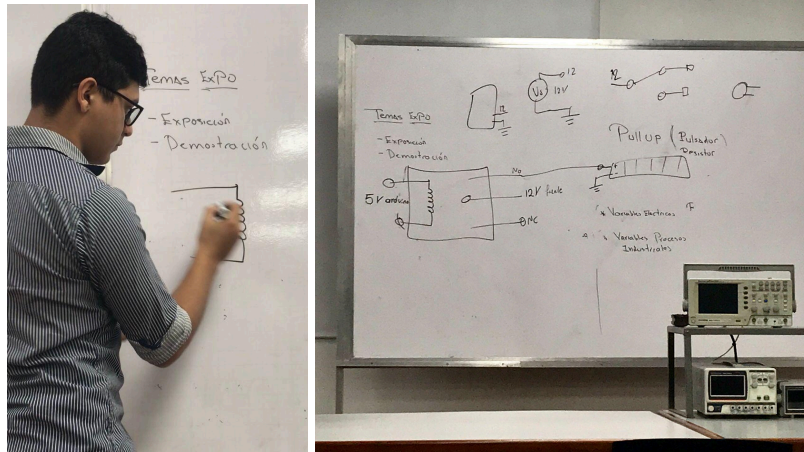 Temas ExPO
- Exposición
- Demostración
Temas ExPO
- Exposición
- Demostración
12
Vs 12V
12
Pull up (Pulsador)
Resistor
No
5V arduino
12V fuente
NC
* Variables Electricas
* Variables Procesos
Industriales